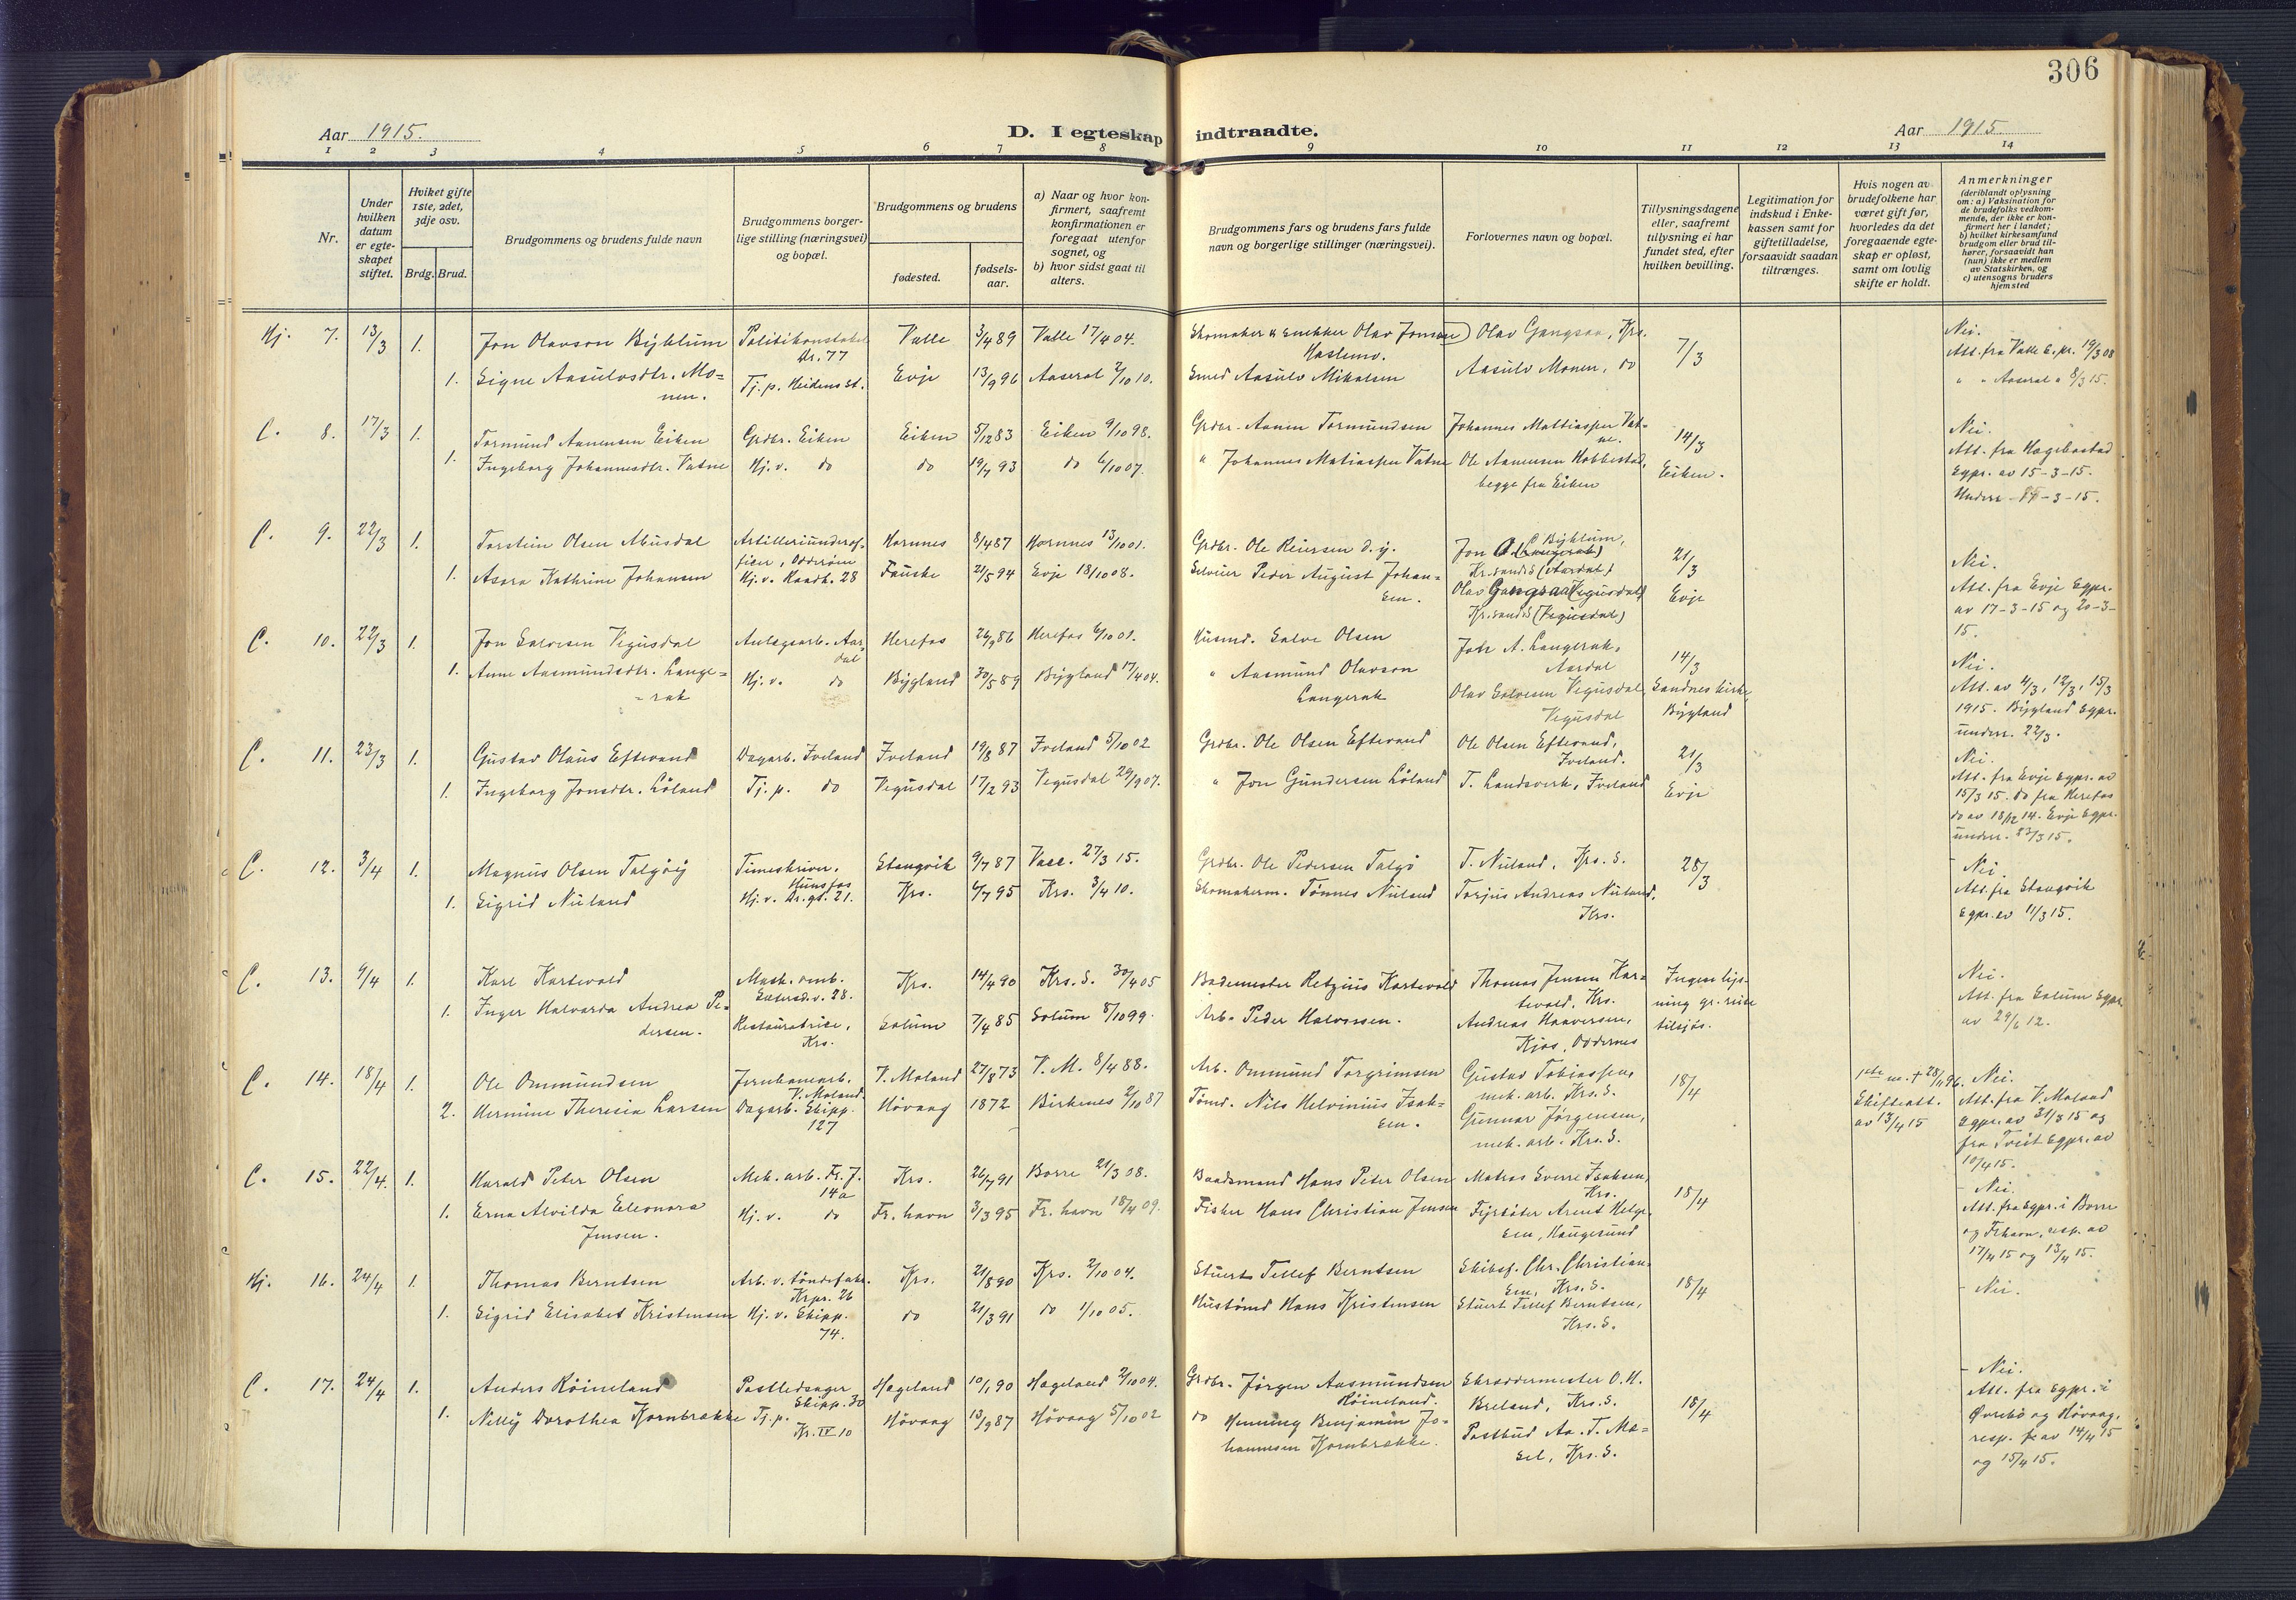 306
Aar 1915.
D. I egteskap indtraadte.
Aar 1915
1 2 3 4 5 6 7 8 9 10 11 12 13 14
Nr.
Under hvilken datum er egteskapet stiftet.
Hvilket gifte 1ste, 2det, 3dje osv.
Brdg. Brud.
Brudgommens og brudens fulde navn
Brudgommens borgerlige stilling (næringsvei) og bopæl.
Brudgommens og brudens
fødested.
fødselsaar.
a) Naar og hvor konfirmert, saafremt konfirmationen er foregaat utenfor sognet, og
b) hvor sidst gaat til alters.
Brudgommens fars og brudens fars fulde navn og borgerlige stillinger (næringsvei).
Forlovernes navn og bopæl.
Tillysningsdagene eller, saafremt tillysning ei har fundet sted, efter hvilken bevilling.
Legitimation for indskud i Enkekassen samt for giftetilladelse, forsaavidt saadan tiltrænges.
Hvis nogen av brudefolkene har været gift før, hvorledes da det foregaaende egteskap er opløst, samt om lovlig skifte er holdt.
Anmerkninger
(deriblandt oplysning om: a) Vaksination for de brudefolks vedkommende, der ikke er konfirmert her i landet; b) hvilket kirkesamfund brudgom eller brud tilhører, forsaavidt han (hun) ikke er medlem av Statskirken, og c) utensogns bruders hjemsted
Hj. 7. 13/3 1. Jon Olavson Byklum Politikonstabel Nr. 77 Valle 3/4 89 Valle 17/4 04. Skomaker & snekker Olav Jonsen Haslemo. Olav Gangsaa, Krs. 7/3 Nei.
1. Signe Aasulvsdtr. Monen. Tj. p. Heidens st. Evje 13/9 96 Aaseral 2/10 10. Smed Aasulv Mikalsen Aasulv Monen, do Att. fra Valle E.pr. 19/3 08
" " Aaseral " 8/3 15.
C. 8. 17/3 1. Tormund Aanensen Eiken Grdbr. Eiken Eiken 5/12 83 Eiken 9/10 98. Grdbr. Aanen Tormundsen Johannes Mattiassen Vatne. 14/3 Nei.
1. Ingeborg Johannesdtr. Vatne Hj. v. do do 19/7 93 do 6/10 07. " Johannes Matiassen Vatne Ole Aanensen Hobbestad, begge fra Eiken Eiken. Att. fra Hægebostad
Sgpr. av 15-3-15.
Underr. 17-3-15.
C. 9. 22/3 1. Torstein Olsen Abusdal Artilleriunderofficer, Odderøen Hornnes 8/4 87 Hornnes 13/10 01. Grdbr. Ole Reiersen d.y. Jon O. Byklum, Kr.sand S. 21/3 Nei.
1. Asora Kathrine Johansen Hj. v. Raadh. 28 Fauske 21/5 94 Evje 18/10 08. Peder August Johansen. Olav Gangsaa Kr.sand S. (Vegusdal) Evje Att. fra Evje Sgpr.
av 17-3-15 og 20-3-15.
C. 10. 22/3 1. Jon Salvesen Vegusdal Anlægsarb. Aardal Herefos 26/9 86 Herefos 6/10 01. Husmd. Salve Olsen A. Langerak, Aardal 14/3 Nei.
1. Anne Aasmundsdtr. Langerak Hj. v. do Bygland 30/5 89 Bygland 17/4 04. " Aasmund Olavson Langerak Olav Salvesen Vegusdal, Vegusdal Sandnes kirke, Bygland Att. av 4/3, 12/3, 15/3
1915. Bygland Sgpr.
underr. 22/3.
C. 11. 23/3 1. Gustav Olaus Eftevand Dagarb. Iveland Iveland 19/8 87 Iveland 5/10 02 Grdbr. Ole Olsen Eftevand Ole Olsen Eftevand, Iveland. 21/3 Nei.
1. Ingeborg Jonsdtr. Løland Tj. p. do Vegusdal 17/2 93 Vegusdal 29/9 07. " Jon Gundersen Løland T. Landsverk, Iveland Evje Att. fra Evje Sgpr. av
15/3 15. do fra Herefos
do av 18/12 14. Evje Sgpr.
underr. 23/3 15.
C. 12. 3/4 1. Magnus Olsen Talgøy Timeskriver, Hunsfos Stangvik 9/7 87 Vacc. 27/3 15. Grdbr. Ole Pedersen Talgø T. Nuland, Krs. S. 28/3 Nei.
1. Sigrid Nuland Hj. v. Dr. gt. 21. Krs. 4/7 95 Krs. 3/4 10. Skomakerm. Tønnes Nuland Torjus Andreas Nuland, Krs. Att. fra Stangvik
Sgpr. av 11/3 15.
C. 13. 9/4 1. Karl Kartevold Mask. omb. Krs. 14/4 90 Krs. S. 30/4 05 Bademester Retzius Kartevold Thomas Jensen Kartevold, Krs. Ingen lysning gr. reise tilsjøs. Nei.
1. Inger Halvarda Andrea Pedersen. Restauratrice, Krs. Solum 7/4 85 Solum 8/10 99. Arb. Peder Halvorsen. Andreas Haaversen, Kjos, Oddernes Att. fra Solum Sgpr.
av 29/6 12.
C. 14. 18/4 1. Ole Ommundsen Jernbanearb. V. Moland V. Moland 27/8 73 V. M. 8/4 88. Arb. Ommund Torgrimsen Gustav Tobiassen, mek. arb. Krs. S. 18/4 1ste m. † 28/11 96. Skifteatt. av 13/4 15 Nei.
2. Hermine Theresia Larsen Dagarb. Skipp. 127 Høvaag 1872 Birkenes 2/10 87 Tømd. Nils Helvinius Isaksen. Gunnar Jørgensen, mek. arb. Krs. S. Att. fra V. Moland
Sgpr. av 31/3 15 og
fra Tveit Sgpr. av
10/4 15.
C. 15. 22/4 1. Harald Peter Olsen Mek. arb. Fr. J. 14a Krs. 26/7 91 Borre 21/3 08. Baadsmand Hans Peter Olsen Matros Sverre Isaksen, Krs. 18/4 Nei.
1. Erna Alvilda Eleonora Jensen. Hj. v. do Fr. havn 3/3 95 Fr. havn 18/4 09. Fisker Hans Christian Jensen Fyrbøter Arent Helgesen, Haugesund Att. fra Sgpr. i Borre
og Frhavn, resp. av
17/4 15 og 13/4 15.
Hj. 16. 24/4 1. Thomas Berntsen Arb. v. tøndefabr. Krpr. 26 Krs. 21/8 90 Krs. 2/10 04. Stuert Tellef Berntsen Skibsf. Chr. Christiansen, Krs. S. 18/4 Nei.
1. Sigrid Elisabet Kristensen Hj. v. Skipp. 74. do 21/3 91 do 1/10 05. Hustømd Hans Kristensen Stuert Tellef Berntsen, Krs. S.
C. 17. 24/4 1. Anders Røineland Postledsager Skipp. 30 Hægeland 10/1 90 Hægeland 2/10 04. Grdbr. Jørgen Aasmundsen Røineland. Skræddermester O. H. Breland, Krs. S. 18/4 Nei.
1. Nelly Dorothea Kornbrække Tj. p. Kr. IV 10 Høvaag 13/9 87 Høvaag 5/10 02 do Henning Benjamin Johannesen Kornbrække. Postbud Aa. T. Mosel, Krs. S. Att. fra Sgpr. i
Øvrebø og Høvaag,
resp. av 14/4 15
og 15/4 15.